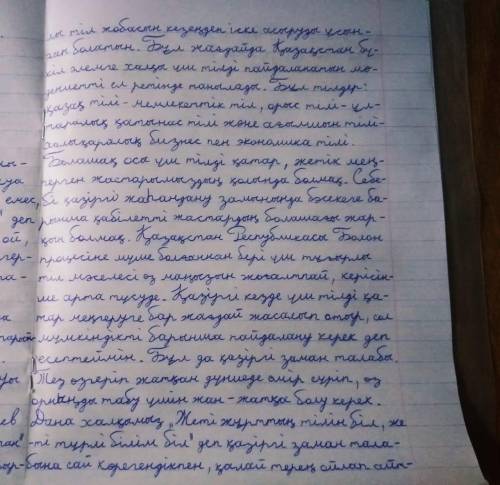 лы тіл жобасын кезеңдеп іске асыруды ұсын-
ған болатын. Бұл жағдайда Қазақстан бү-
кіл әлемге халқы үш тілді пайдаланатын мә-
дениетті ел ретінде танылады. Бұл тілдер:
қазақ тілі - мемлекеттік тіл, орыс тілі - ұл-
таралық қатынас тілі және ағылшын тілі-
халықаралық бизнес пен экономика тілі.
ы- Болашақ осы үш тілді қатар, жетік мең-
герген жастарымыздың қолында болмақ. Себе-
емес, бі қазіргі жаһандану заманында бәсекеге ба-
" деп рынша қабілетті жастардың болашағы жар-
ой, қын болмақ. Қазақстан Республикасы Болон
гер- процесіне мүше болғаннан бері үш тұғырлы
та- тіл мәселесі өз маңызын жоғалтпай, керісін-
ше арта түсуде. Қазіргі кезде үш тілді қа-
а тар меңгеруге бар жағдай жасалып отыр, сол
мүмкіндікті барынша пайдалану керек деп
есептеймін. Бұл да қазіргі заман талабы.
Тез өзгеріп жатқан дүниеде өмір сүріп, өз
орныңды табу үшін жан-жақты болу керек.
ев Дана халқымыз "Жеті жұрттың тілін біл, же-
ті түрлі білім біл" деп қазіргі заман тала-
бына сай көрегендікпен, қалай терең ойлап айт-